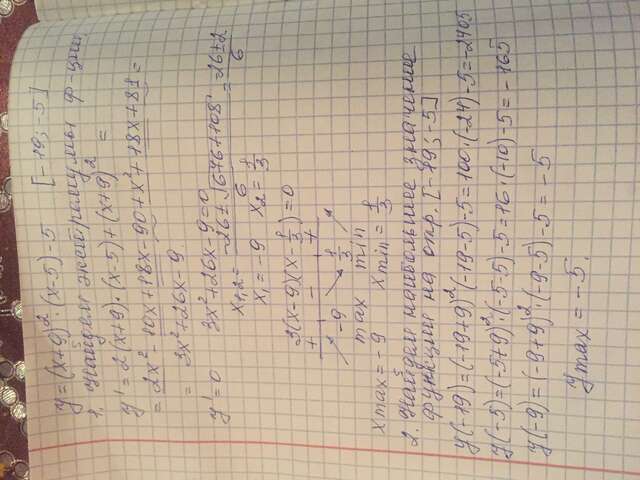 y=(x+9)²·(x-5)-5 [-19; -5]
1. Найдём экстремумы ф-ции
y'=2(x+9)·(x-5)+(x+9)² =
=2x²-10x+18x-90+x²+18x+81=
= 3x²+26x-9
y'=0 3x²+26x-9=0
x₁,₂= -26±√676+108 / 6 = -26±2 / 6
x₁=-9 x₂=1/3
3(x-9)(x-1/3)=0
+ - +
-9 1/3
max min
xmax=-9 xmin=1/3
2. Найдём наибольшее значение
функции на отр. [-19; -5]
y(-19)=(-19+9)²·(-19-5)-5=100·(-24)-5=-2405
y(-5)=(-5+9)²·(-5-5)-5=16·(-10)-5=-165
y(-9)=(-9+9)²·(-9-5)-5=-5
ymax=-5.